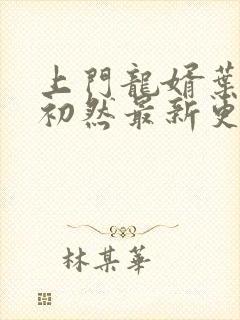 上門龍婿葉
初然最新更
林某華